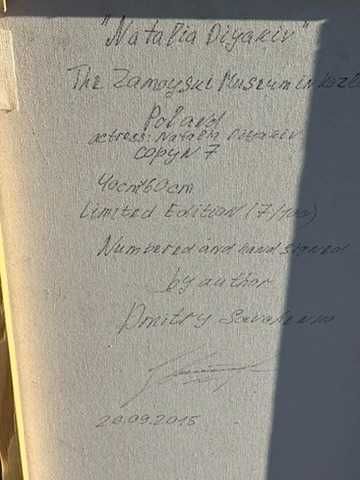 "Natalia Diyakiv"
The Zamoyski Museum in Kozl
Poland
actress: Natalia Diyakiv
copy N 7
40cm*60cm
Limited Edition (7/100)
Numbered and hand signed
by author
Dmitry
20.09.2015